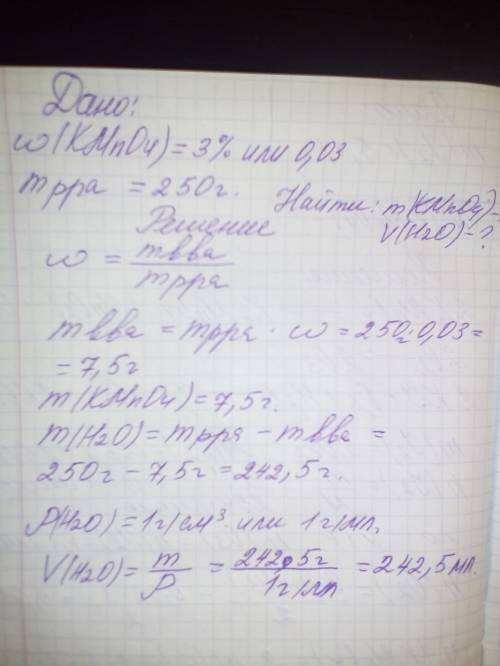 Дано:
ω(KMnO4) = 3% или 0,03
mрра = 250г.
Найти: m(KMnO4)
V(H2O)-?
Решение
ω = mвва / mрра
mвва = mрра · ω = 250г·0,03=
= 7,5г
m(KMnO4) = 7,5г.
m(H2O) = mрра – mвва =
250г – 7,5г = 242,5г.
ρ(H2O) = 1г/см³ или 1г/мл.
V(H2O) = m / ρ = 242,5г / 1г/мл = 242,5мл.